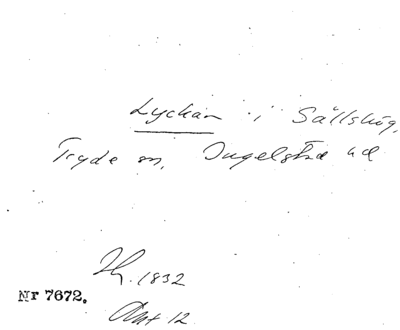 Lyckan i Sällshög,
Tryde sn, Ingelstad hd
1832
Nr 7672.
Akt 12